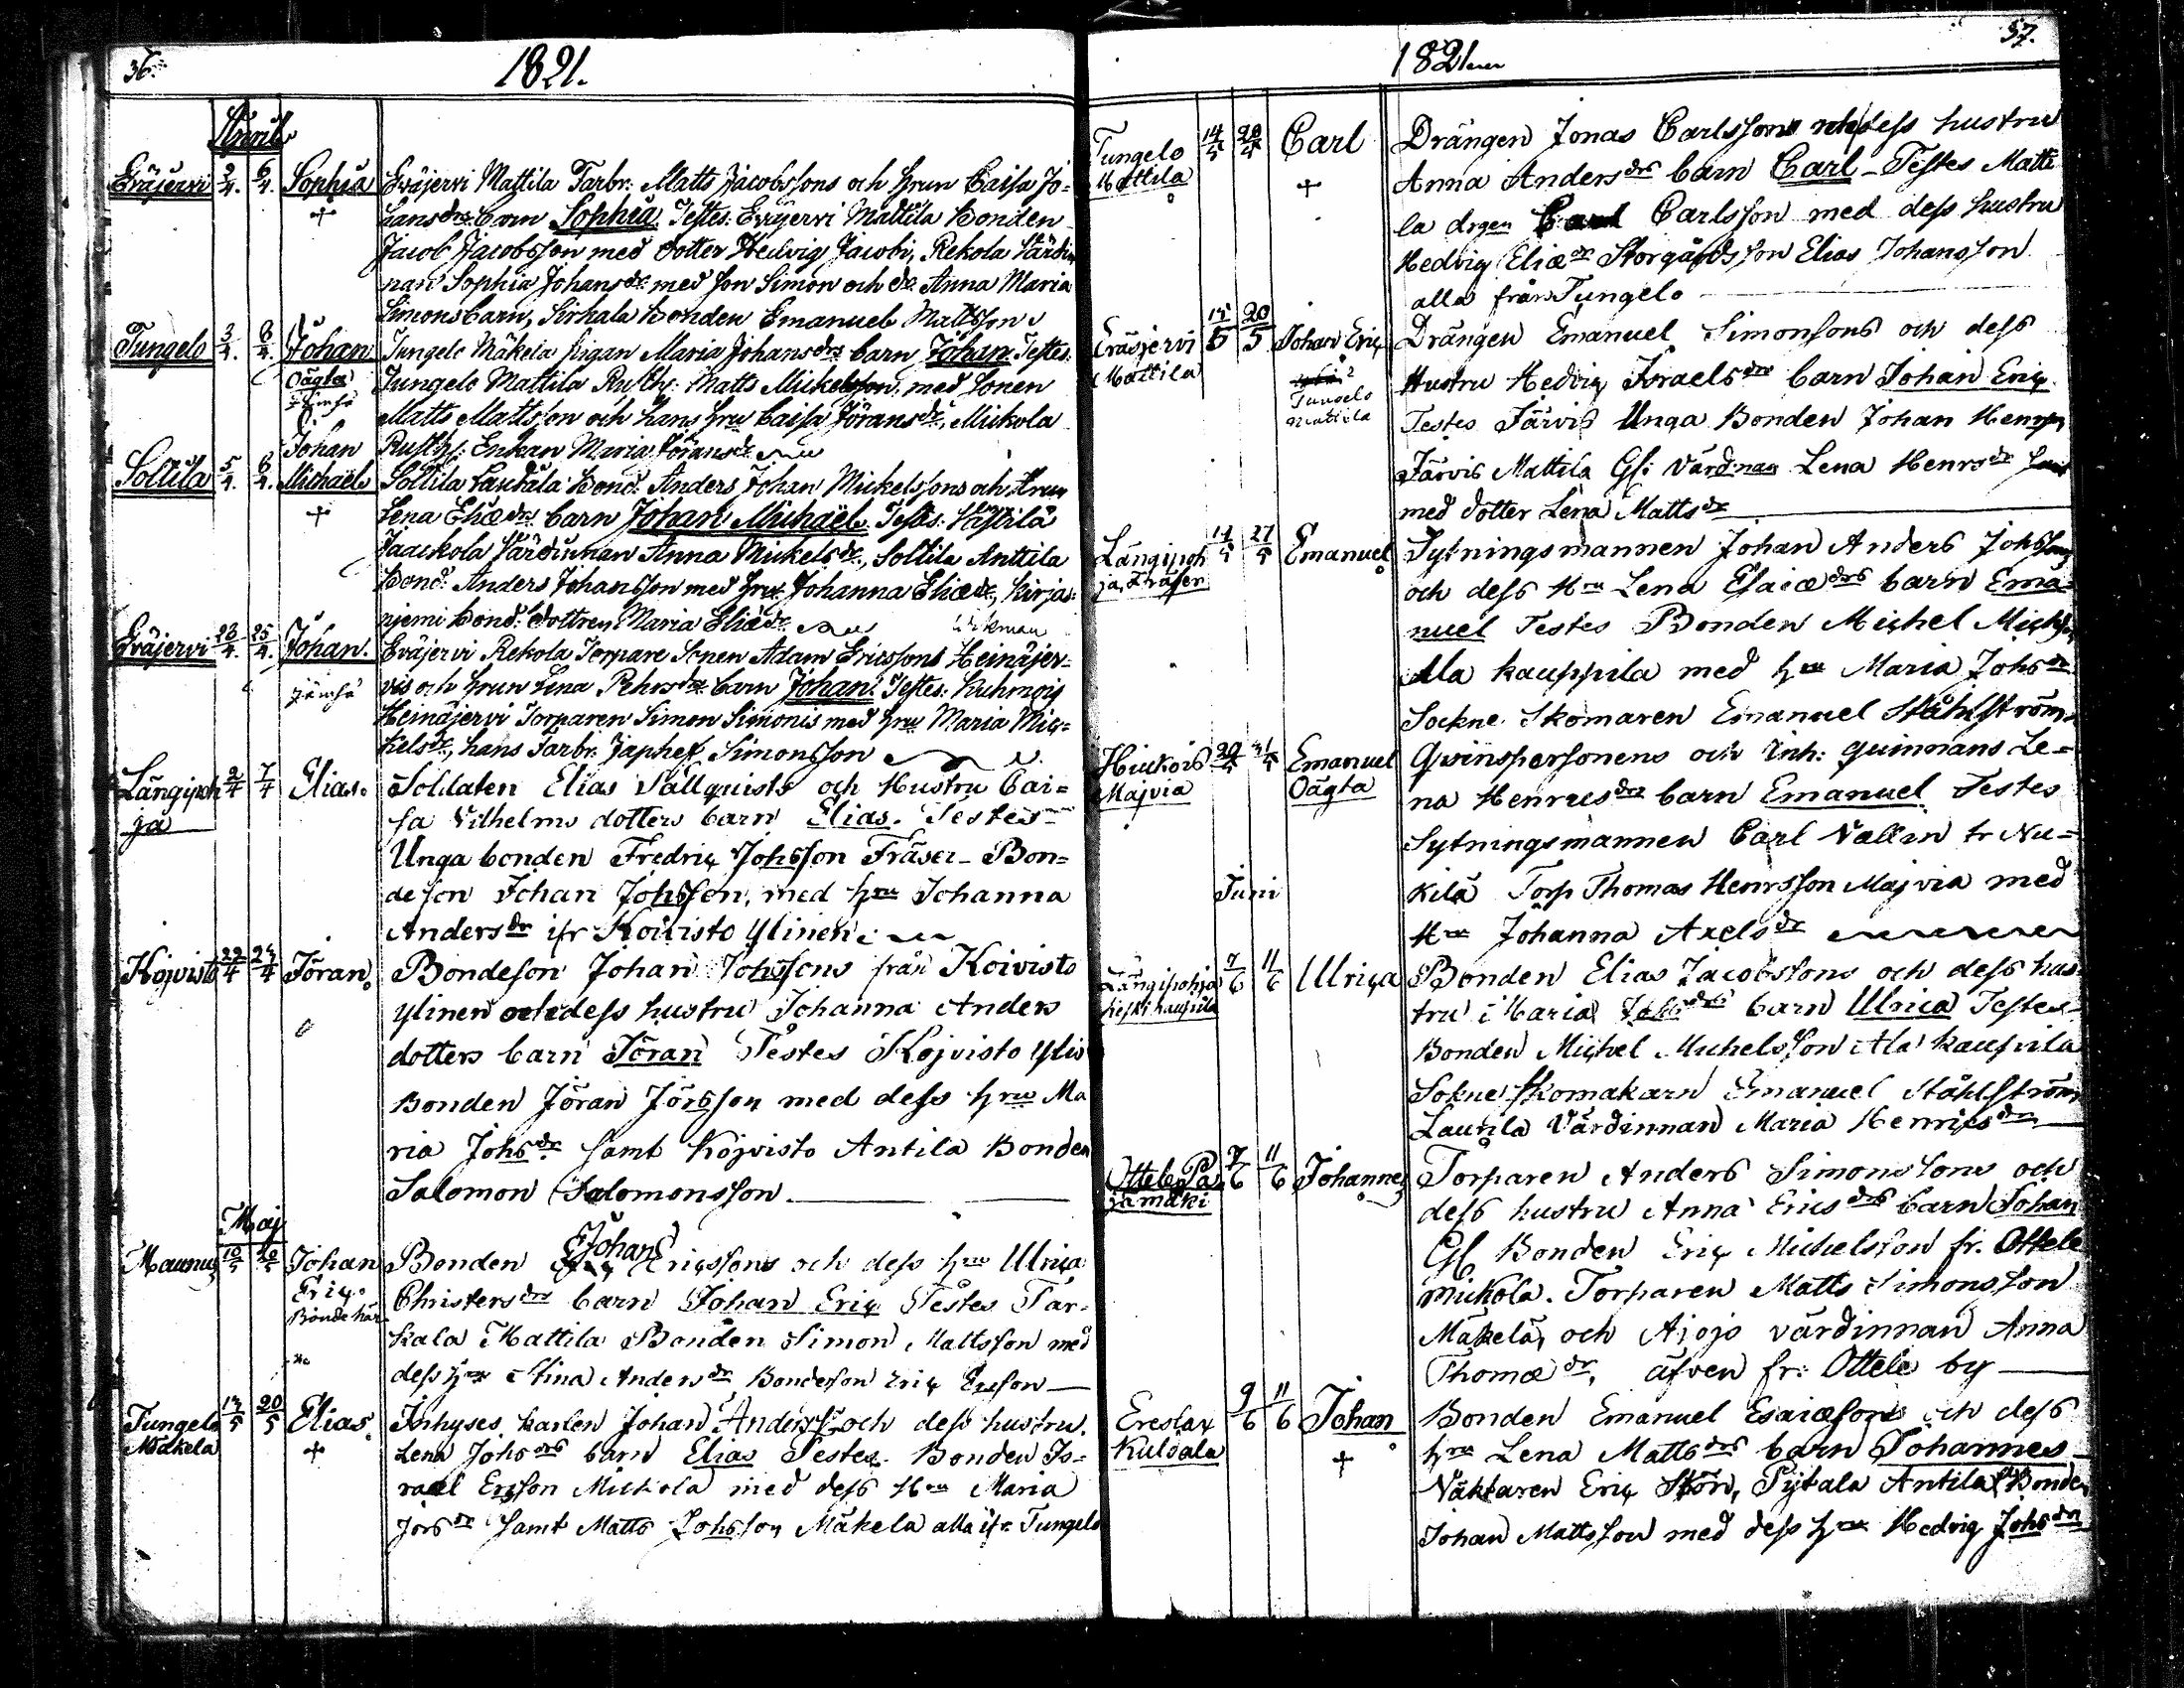 36.
1821.
April
Eväjervi 2/4. 6/4. Sophia Eväjervi Mattila Farbr: Matts Jacobssons och hrun Caisa Jo=
hansdrs barn Sophia. Testes: Eväjervi Mattila bonden
Jacob Jacobsson med dotter Hedvig Jacobi, Rekola Värdin
nan Sophia Johansdr med son Simon och dr Anna Maria
Simons barn, Sirkala bonden Emanuel Mattsson
Jungelo 3/4. 8/4. Johan Jungelo Mäkelä pigan Maria Johansdrs barn Johan Testes:
Oägta Jungelo Mattila Rusth: Matts Mickelsson, med sonen
Jämsä Matts Mattsson och hans hru Caisa Jöransdr, Mickola
Rusth: Enkan Maria Jöransdr
Soltila 5/4. 8/4. Johan Michael Soltila Laudala bond: Anders Johan Mickelssons och hrun
Lena Eliædrs barn Johan Michaël. Testes: Västilä
Jaackola Värdinnan Anna Mickelsdr, Soltila Anttila
bond: Anders Johansson med hru Johanna Eliædr, Kirjas=
njemi bond: dottren Maria Eliædr
Eväjervi 23/4. 25/4. Johan. Eväjervi Rekola Torpare sonen Adam Ericssons Heinäjer=
jämsä vis och hrun Lena Pehrsdrs barn Johan. Testes: Kuhmois
Heinäjervi Torparen Simon Simonis med hru Maria Mic=
kelsdr, hans Farbr: Japhet Simonsson
Längipoh 2/4 7/4 Elias. Soldaten Elias Vällquists och Hustru Cai=
ja sa Vilhelms dotters barn Elias. Testes
Unga bonden Fredric Johsson Fräser_ Bon=
deson Johan Johsson, med hru Johanna
Andersdr ifr Koivisto Ylinen.
Kojvisto 22/4 24/4 Jöran Bondeson Johan Johssons från Koivisto
ylinen och dess hustru Johanna Anders
dotters barn Jöran Testes Kojvisto Ylis
Bonden Jöran Jörsson med dess hru Ma
ria Johsdr samt Kojvisto Antila Bonden
Salomon Salomonsson
Maj
Maunus 10/5 20/5 Johan Eric. Bonden Johan Ericssons och dess hru Ulrica
Christersdrs barn Johan Eric Testes Tar=
kala Mattila Bonden Simon Mattsson med
dess hru Stina Andersdr Bondeson Eric Ericson
Jungelo Mäkelä 17/5 20/5 Elias. Inhyses karlen Johan Anderss: och dess hustru
Lena Johsdrs barn Elias Testes. Bonden Is=
rael Ersson Mickola med dess Hru Maria
Jörsdr samt Matts Johsson Mäkela alla ifr Jungelo
1821
37.
Jungelo Mattila 14/5 20/5 Carl Drängen Jonas Carlssons och dess hustru
Anna Andersdrs barn Carl _ Testes Matti
la drgen Carlsson med dess hustru
Hedvig Eliædr Storgårds son Elias Johansson
alla från Jungelo
Eräsjervi Mattila 15/5 20/5 Johan Eric Drängen Emanuel Simonsons och dess
Hustru Hedvig Israelsdrs barn Johan Eric
Testes Järvis Unga Bonden Johan Henrsn
Järvis Mattila Gl: värd:nan Lena Henrsdr
med dotter Lena Mattsdr
Längipoh ja, Fräser 14/5 27/5 Emanuel Sytningsmannen Johan Anders Johssons
och dess Hru Lena Esaiædrs barn Ema=
nuel Testes Bonden Michel Michson
Ala kauppila med hru Maria Johsdr
Sockne Skomaren Emanuel Ståhlström.
Hiukois Majvia 29/5 31/5 Emanuel Oägta Qvinspersonens och Inh: quinnans Le=
na Henricsdrs barn Emanuel Testes
Sytningsmannen Carl Vallin fr Nu=
kila Torp Thomas Henrsson Majvia med
Hru Johanna Axelsdr
Juni
Längipohja Keskikaupila 7/6 11/6 Ulrica Bonden Elias Jacobssons och dess hus
tru Maria Johsdrs barn Ulrica Testes
Bonden Michel Michelsson Ala kaupila
Sokne Skomakarn Emanuel Ståhlström
Laurila Värdinnan Maria Henricsdr
Ottele Pa jamäki 7/6 11/6 Johannes Torparen Anders Simonssons och
dess hustru Anna Ericsdrs barn Johan
Gl. Bonden Eric Michelsson fr. Ottele
Mickola. Torparen Matts Simonsson
Mäkelä, och Ajojo värdinnan Anna
Thomædr, äfven fr: Ottele by
Ereslax Kuldala 9/6 11/6 Johan Bonden Emanuel Esaiæsons och dess
hru Lena Mattsdrs barn Johannes
Väktaren Eric Stör, Pytala Antila Bonden
Johan Mattsson med dess hru Hedvig Johsdr